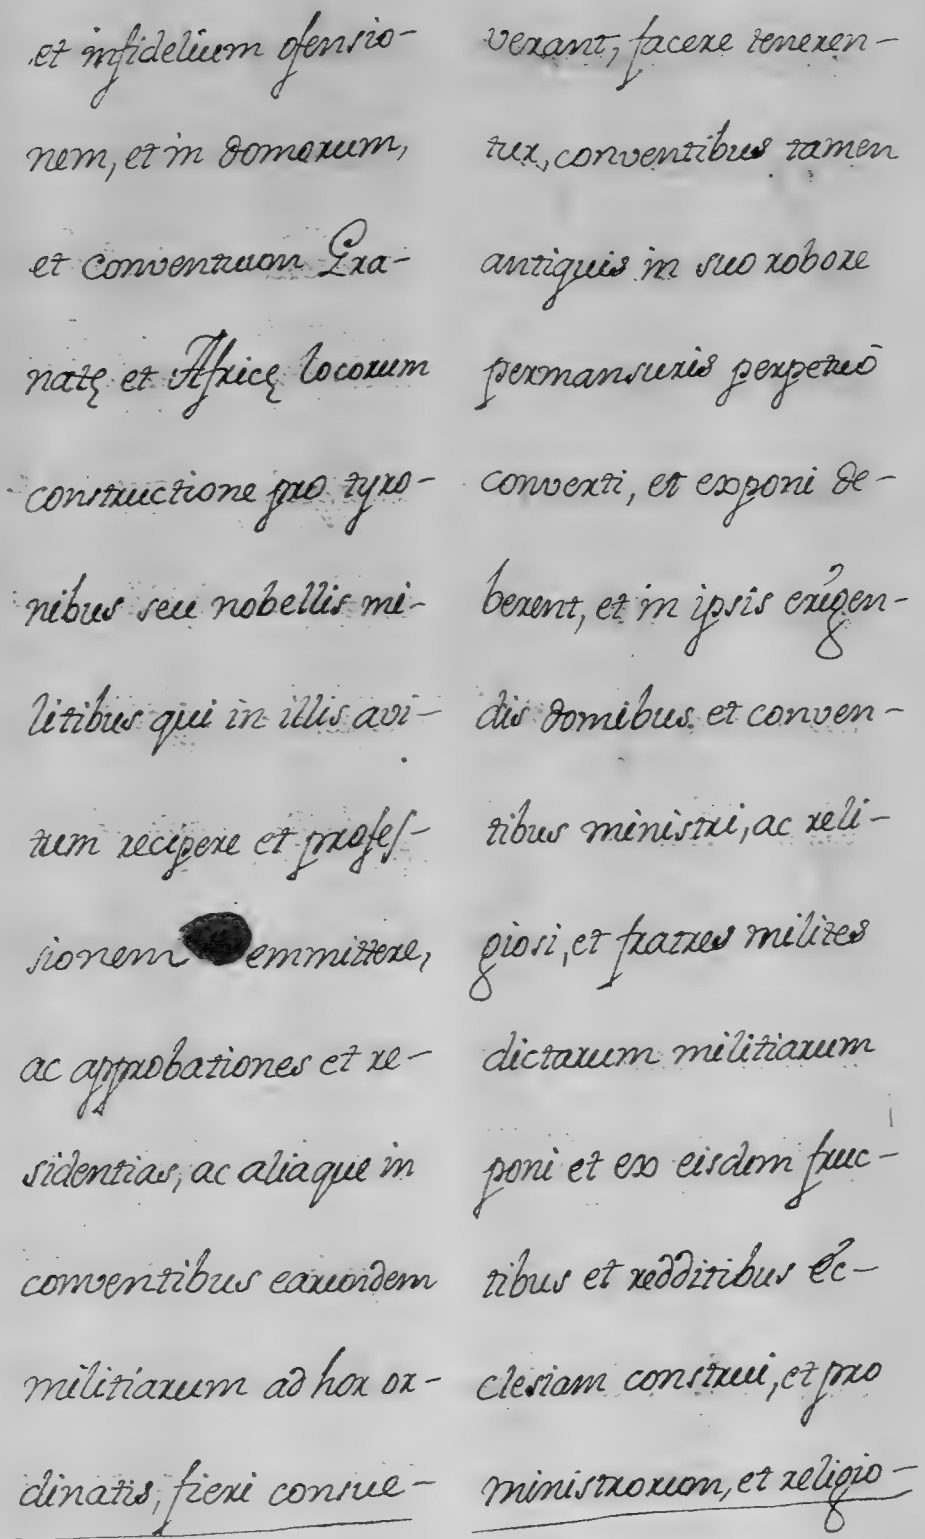 et infidelium ofensio-
nem, et in domorum,
et conventuum Gra-
natę et Africę locorum
constructione pro tyro-
nibus seu nobellis mi-
litibus qui in illis avi-
tum recipere et profes-
sionem emmittere,
ac approbationes et re-
sidentias, ac aliaque in
conventibus earumdem
militiarum ad hox or-
dinatis, fieri consue-
verant, facere teneren-
tur, conventibus tamen
antiquis in suo robore
permansuris perpetuò
converti, et exponi de-
berent, et in ipsis erigen-
dis domibus et conven-
tibus ministri, ac reli-
giosi, et fratres milites
dictarum militiarum
poni et ex eisdem fruc-
tibus et redditibus ec-
clesiam construi, et pro
ministrorum, et religio-